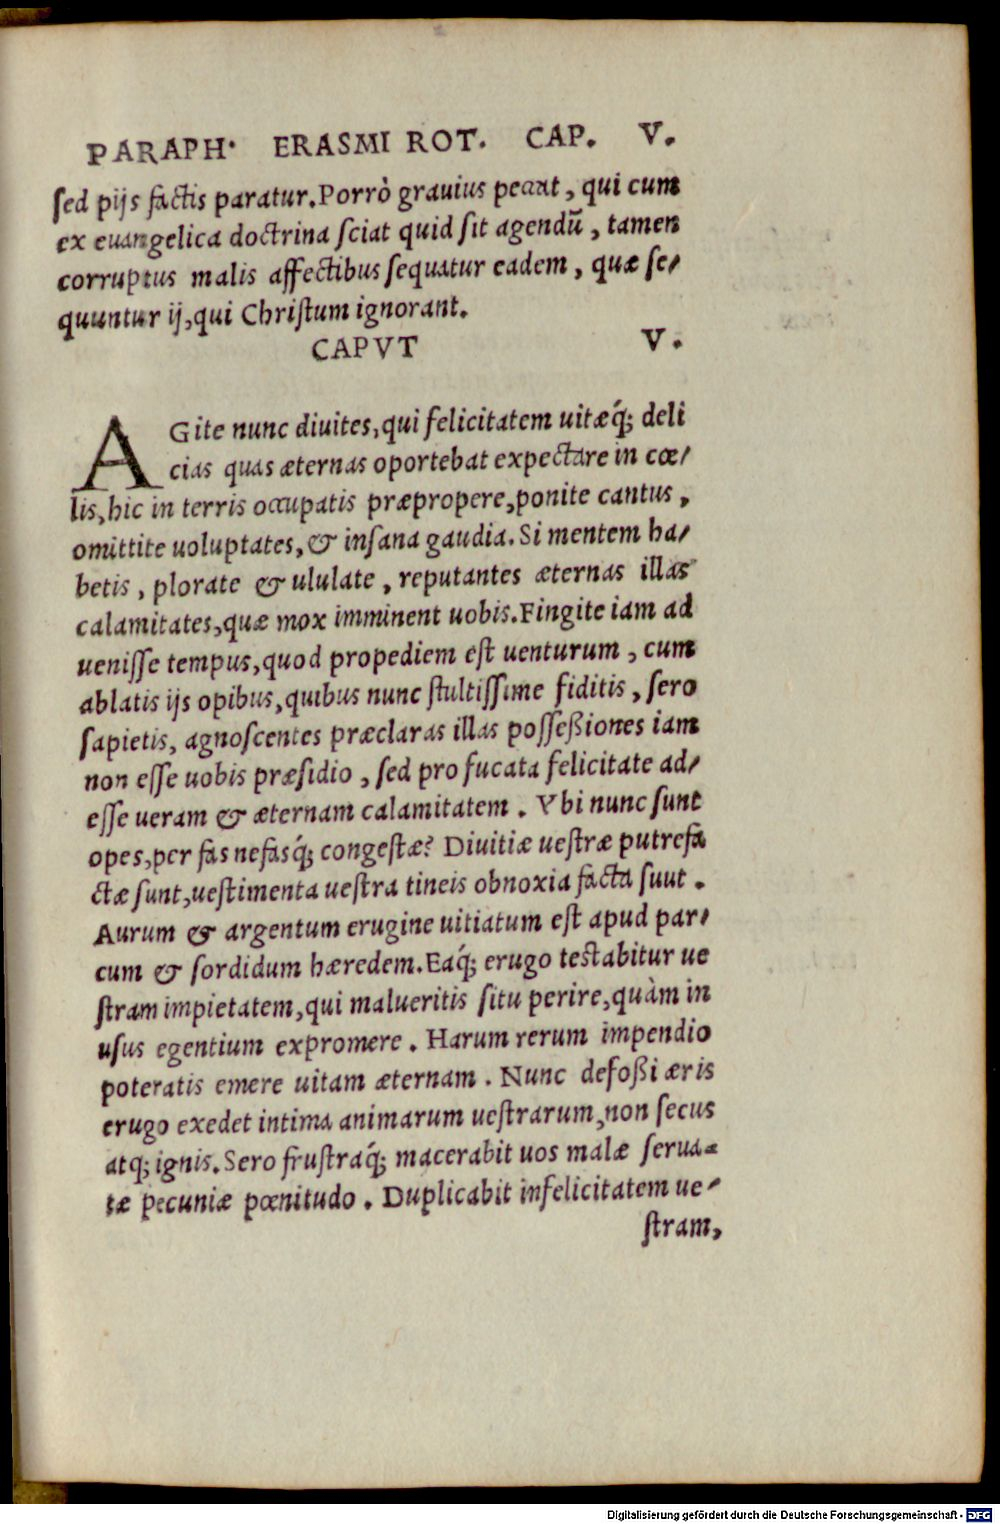 PARAPH. ERASMI ROT. CAP. V.
sed pijs factis paratur. Porrò grauius peccat, qui cum
ex euangelica doctrina sciat quid sit agendũ, tamen
corruptus malis affectibus sequatur eadem, quæ se-
quuntur ij, qui Christum ignorant.
CAPVT V.
AGite nunc diuites, qui felicitatem uitæq́; deli
cias quas æternas oportebat expectare in cœ-
lis, hic in terris occupatis præpropere, ponite cantus,
omittite uoluptates, & insana gaudia. Si mentem ha-
betis, plorate & ululate, reputantes æternas illas
calamitates, quæ mox imminent uobis. Fingite iam ad
uenisse tempus, quod propediem est uenturum, cum
ablatis ijs opibus, quibus nunc stultissime fiditis, sero
sapietis, agnoscentes præclaras illas posseßiones iam
non esse uobis præsidio, sed pro fucata felicitate ad-
esse ueram & æternam calamitatem. Vbi nunc sunt
opes, per fas nefasq́; congestæ? Diuitiæ uestræ putrefa
ctæ sunt, uestimenta uestra tineis obnoxia facta suut.
Aurum & argentum erugine uitiatum est apud par-
cum & sordidum hæredem. Eaq́; erugo testabitur ue
stram impietatem, qui malueritis situ perire, quàm in
usus egentium expromere. Harum rerum impendio
poteratis emere uitam æternam. Nunc defoßi æris
erugo exedet intima animarum uestrarum, non secus
atq; ignis. Sero frustraq́; macerabit uos malæ serua-
tæ pecuniæ pœnitudo. Duplicabit infelicitatem ue-
stram,
Digitalisierung gefördert durch die Deutsche Forschungsgemeinschaft - DFG